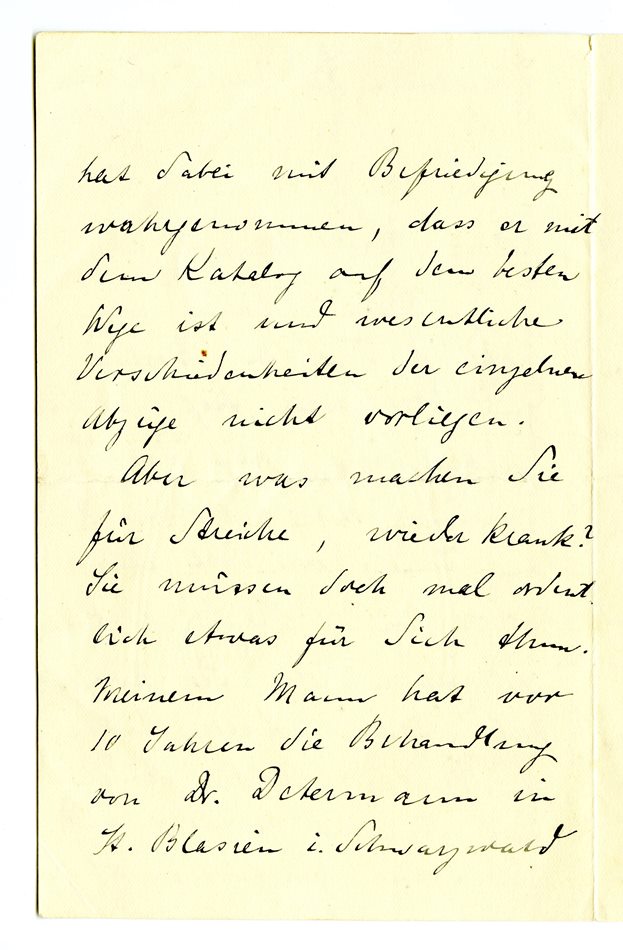 hat dabei mit Befriedigung
wahrgenommen, dass er mit
dem Katalog auf dem besten
Wege ist und wesentliche
Verschiedenheiten der einzelnen
Abzüge nicht vorliegen.
Aber was machen Sie
für Streiche, wieder krank?
Sie müssen doch mal ordent
lich etwas für Sich thun.
Meinem Mann hat vor
10 Jahren die Behandlung
von Dr. Determann in
St. Blasien i. Schwarzwald